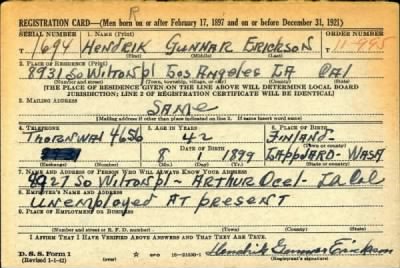 REGISTRATION CARD—(Men born on or after February 17, 1897 and on or before December 31, 1921)
SERIAL NUMBER 1. NAME (Print) ORDER NUMBER
1694 HENDRIK GUNNAR ERICKSON 11-995
(First) (Middle) (Last)
2. PLACE OF RESIDENCE (Print)
8931 So Wilton pl Los Angeles LA CAl
(Number and street) (Town, township, village, or city) (County) (State)
[THE PLACE OF RESIDENCE GIVEN ON THE LINE ABOVE WILL DETERMINE LOCAL BOARD
JURISDICTION; LINE 2 OF REGISTRATION CERTIFICATE WILL BE IDENTICAL]
3. MAILING ADDRESS
SAME
[Mailing address if other than place indicated on line 2. If same insert word same]
4. TELEPHONE 5. AGE IN YEARS 6. PLACE OF BIRTH
4656 42 FINLAND
DATE OF BIRTH
8 1899 WASA
(Exchange) (Number) (Mo.) (Day) (Yr.) (State or country)
7. NAME AND ADDRESS OF PERSON WHO WILL ALWAYS KNOW YOUR ADDRESS
So Wilton pl - ARTHUR La Cal
8. EMPLOYER'S NAME AND ADDRESS
Unemployed AT present
9. PLACE OF EMPLOYMENT OR BUSINESS
(Number and street or R. F. D. number) (Town) (County) (State)
I AFFIRM THAT I HAVE VERIFIED ABOVE ANSWERS AND THAT THEY ARE TRUE.
D. S. S. Form 1
(Revised 1-1-42) (over) Hendrik Gunnar Erickson
(Registrant's signature)